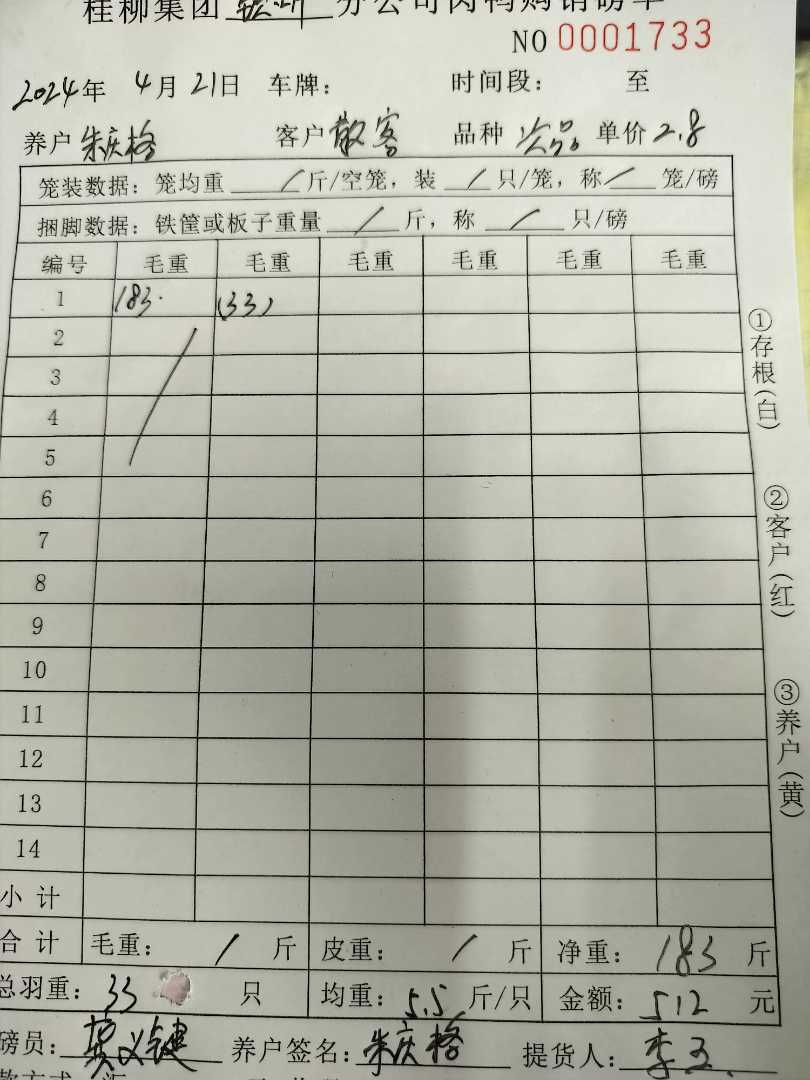 桂柳集团 分公司肉鸭购销磅单
NO 0001733
2024年 4月 21日 车牌: 时间段: 至
养户 朱庆格 客户 散客 品种 次品 单价 2.8
笼装数据: 笼均重 / 斤/空笼, 装 / 只/笼, 称 / 笼/磅
捆脚数据: 铁筐或板子重量 / 斤, 称 / 只/磅
编号 毛重 毛重 毛重 毛重 毛重 毛重
1 183. (33)
2
3
4
5
6
7
8
9
10
11
12
13
14
小计
合计 毛重: / 斤 皮重: / 斤 净重: 183 斤
总羽重: 33 只 均重: 5.5 斤/只 金额: 512 元
磅员: 养户签名: 朱庆格 提货人: 李
①存根(白)
②客户(红)
③养户(黄)